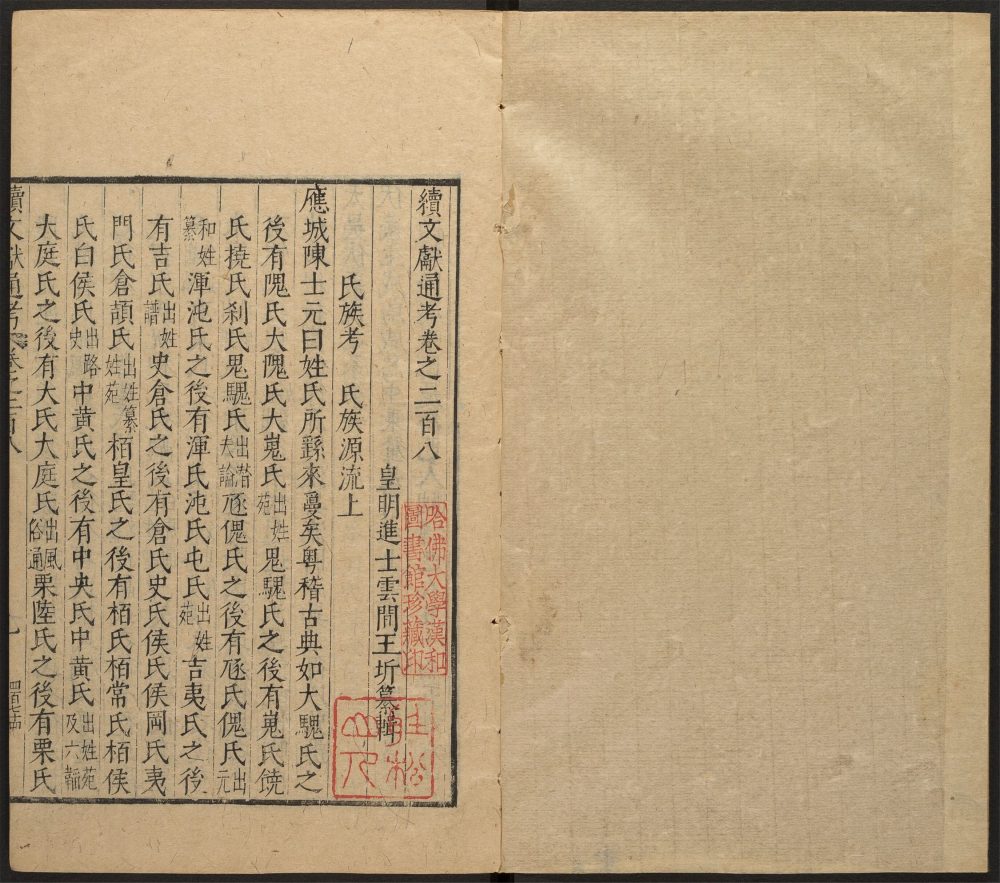 續文獻通考卷之二百八
皇明進士雲間王圻纂輯
氏族考 氏族源流上
應城陳士元曰姓氏所繇來尚矣粵稽古典如大騩氏之
後有隗氏大隗氏大嵬氏出姓苑鬼騩氏之後有嵬氏饒
氏撓氏剎氏鬼騩氏出潛夫論
氏之後有
氏傀氏出元
和姓纂渾沌氏之後有渾氏沌氏屯氏出姓苑吉夷氏之後
有吉氏出姓譜史倉氏之後有倉氏史氏侯氏侯岡氏夷
門氏倉頡氏出姓纂姓苑栢皇氏之後有栢氏栢常氏栢侯
氏白侯氏出路史中黃氏之後有中央氏中黃氏出姓苑及六韜
大庭氏之後有大氏大庭氏出風俗通栗陸氏之後有栗氏
續文獻通考
卷之二百八
哈佛大學漢和
圖書館珍藏印